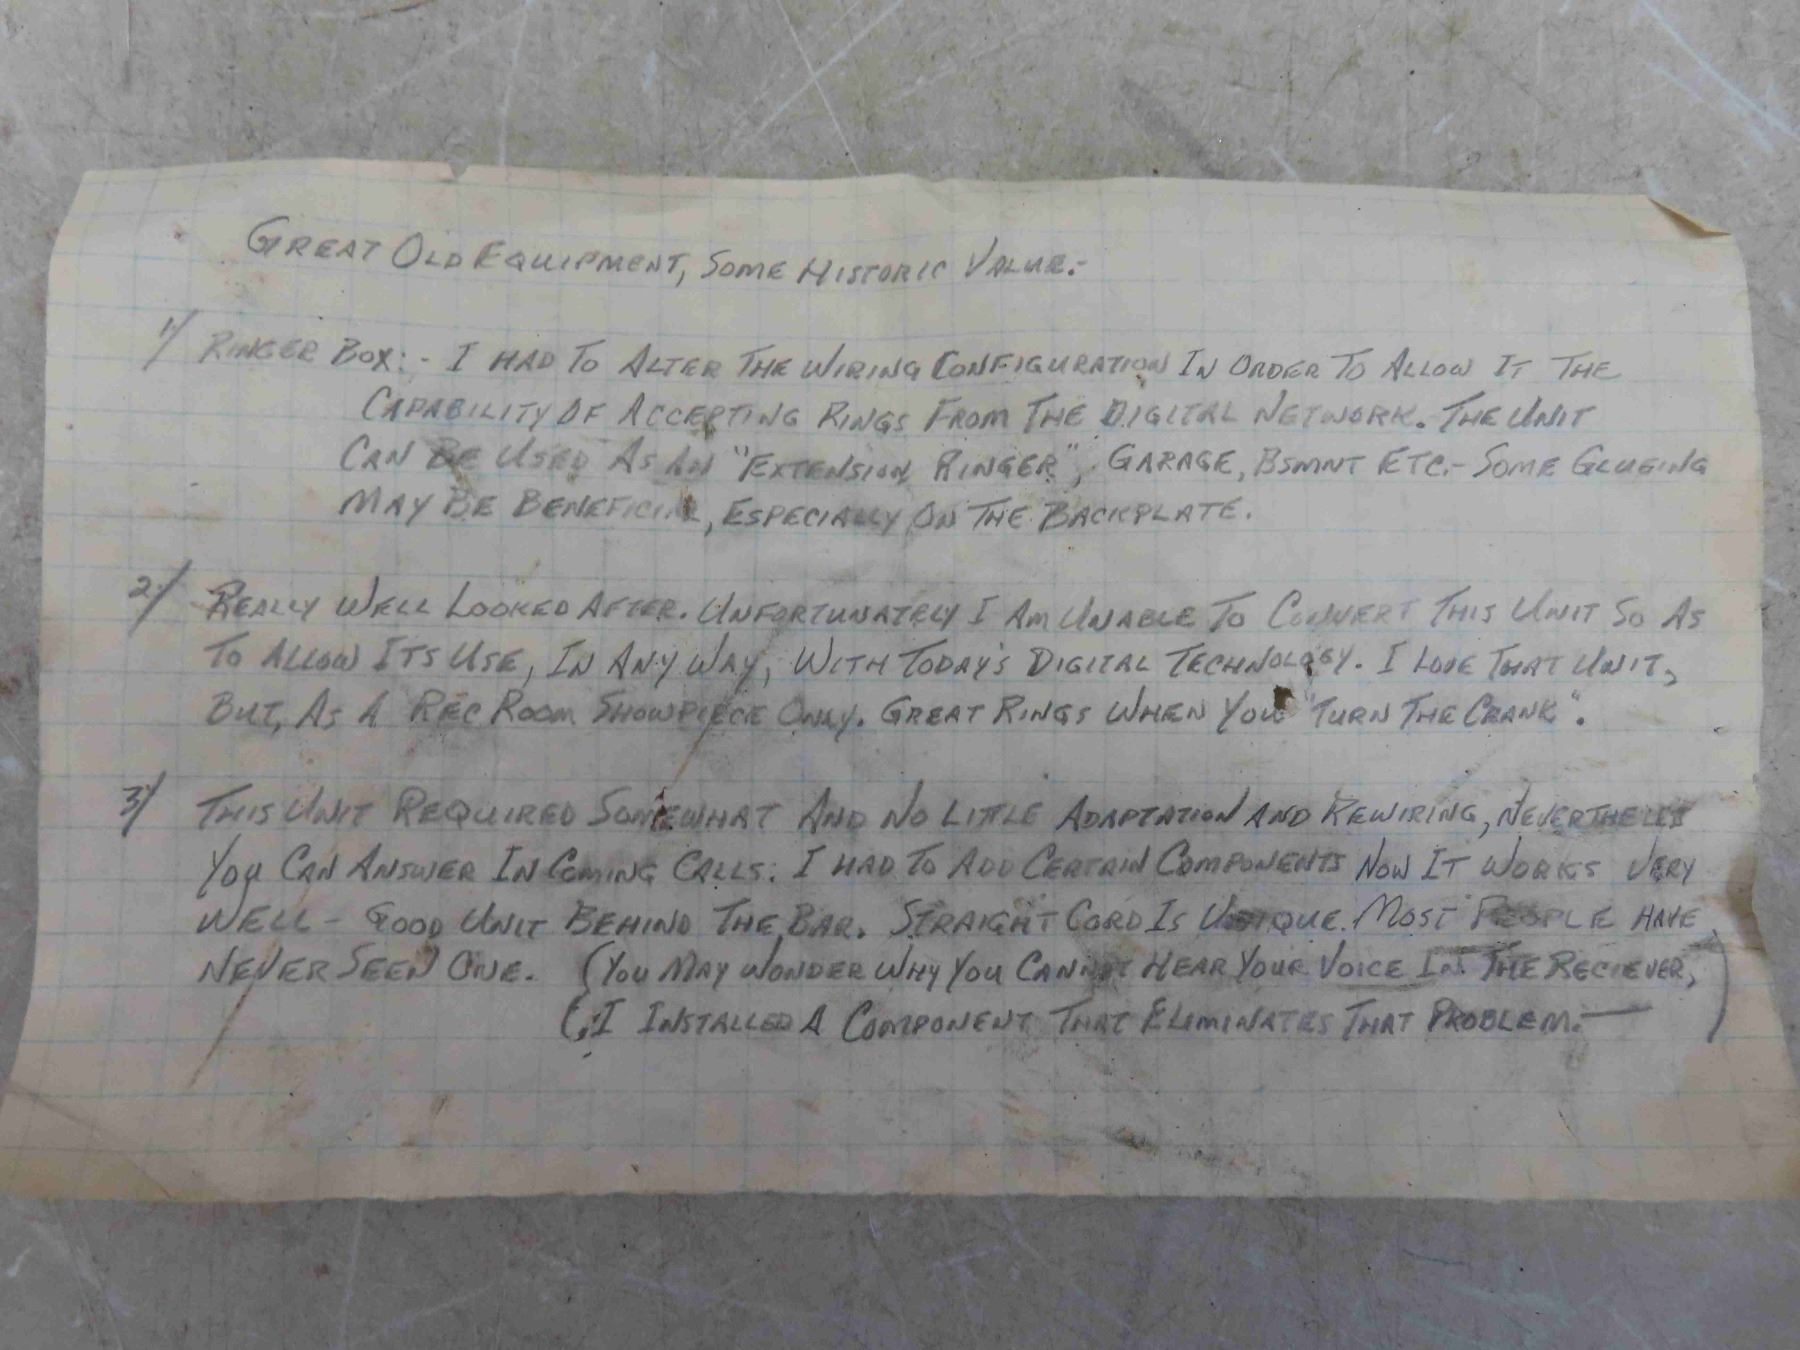 GREAT OLD EQUIPMENT, SOME HISTORIC VALUE:-
1/ RINGER BOX:- I HAD TO ALTER THE WIRING CONFIGURATION IN ORDER TO ALLOW IT THE
CAPABILITY OF ACCEPTING RINGS FROM THE DIGITAL NETWORK. THE UNIT
CAN BE USED AS AN "EXTENSION RINGER", GARAGE, BSMNT ETC.- SOME GLUEING
MAY BE BENEFICIAL, ESPECIALLY ON THE BACKPLATE.
2/ REALLY WELL LOOKED AFTER. UNFORTUNATELY I AM UNABLE TO CONVERT THIS UNIT SO AS
TO ALLOW ITS USE, IN ANY WAY, WITH TODAY'S DIGITAL TECHNOLOGY. I LOVE THAT UNIT,
BUT, AS A REC ROOM SHOWPIECE ONLY. GREAT RINGS WHEN YOU "TURN THE CRANK".
3/ THIS UNIT REQUIRED SOMEWHAT AND NO LITTLE ADAPTATION AND REWIRING, NEVERTHELESS
YOU CAN ANSWER IN COMING CALLS. I HAD TO ADD CERTAIN COMPONENTS NOW IT WORKS VERY
WELL - GOOD UNIT BEHIND THE BAR. STRAIGHT CORD IS UNIQUE. MOST PEOPLE HAVE
NEVER SEEN ONE. (YOU MAY WONDER WHY YOU CANNOT HEAR YOUR VOICE IN THE RECIEVER,
(; I INSTALLED A COMPONENT THAT ELIMINATES THAT PROBLEM.—)